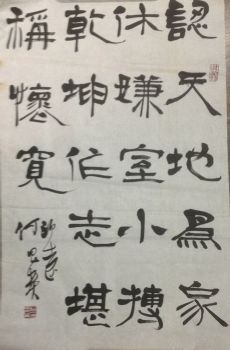 認天地為家
休嫌室小摶
乾坤作志堪
稱懷寬